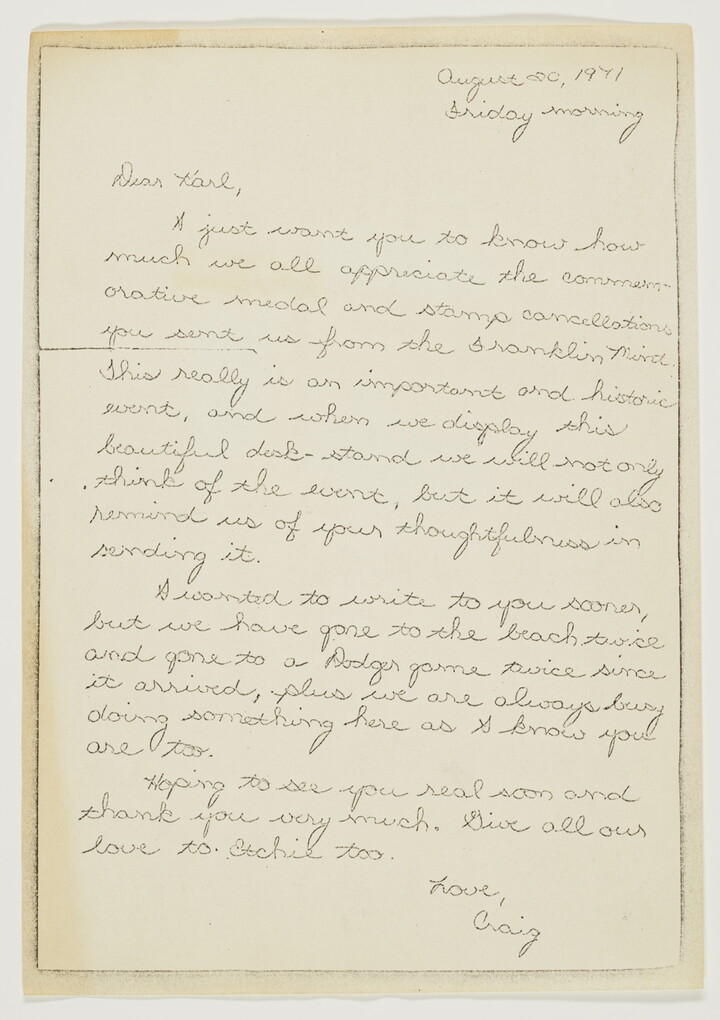 August 20, 1971
Friday morning
Dear Karl,
I just want you to know how
much we all appreciate the commem-
orative medal and stamp cancellations
you sent us from the Franklin Mind.
This really is an important and historic
event, and when we display this
beautiful desk-stand we will not only
think of the event, but it will also
remind us of your thoughtfulness in
sending it.
I wanted to write to you sooner,
but we have gone to the beach twice
and gone to a Dodger game twice since
it arrived, plus we are always busy
doing something here as I know you
are too.
Hoping to see you real soon and
thank you very much. Give all our
love to Etchie too.
Love,
Craig